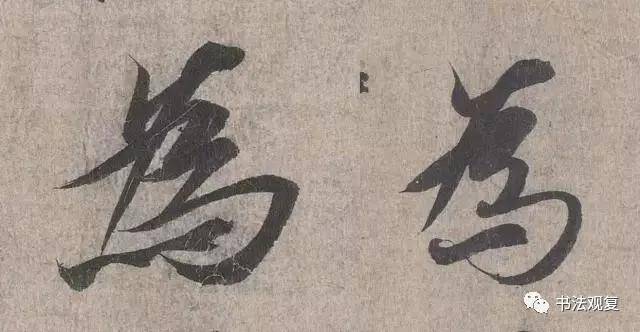 為 為
书法观复